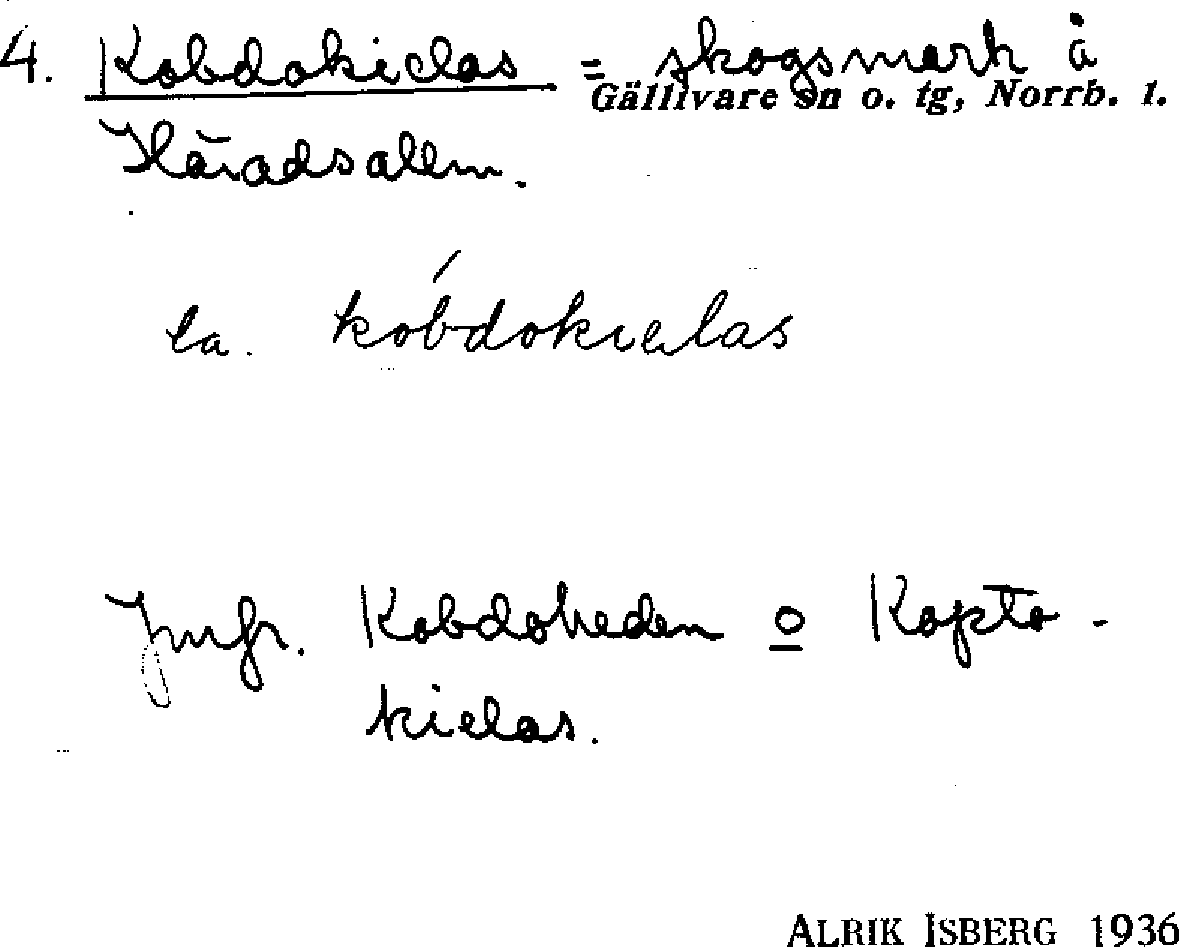 4. Kobdokielas = skogsmark å
Gällivare sn o. tg, Norrb. l.
Häradsallm.
la. kóbdokielas
Jmfr. Kobdoheden o Kopto-
kielas.
ALRIK ISBERG 1936